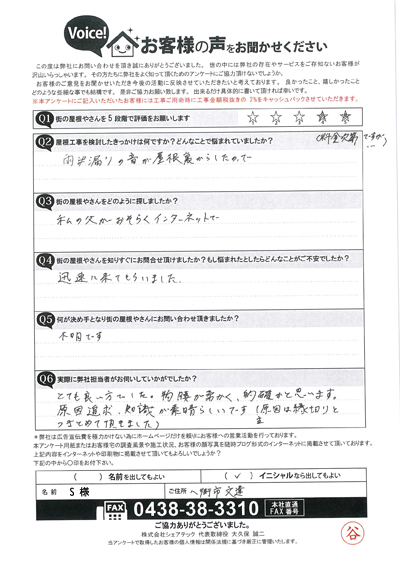 Voice! お客様の声をお聞かせください
この度は弊社にお問い合わせを頂き誠にありがとうございました。世の中には弊社の存在やサービスをご存知ないお客様が
沢山いらっしゃいます。その方たちに弊社をよく知って頂くためのアンケートにご協力頂けないでしょうか。
お客様のご意見をお聞かせいただき今後の活動に反映させていただきたいと考えております。良かったこと、嬉しかったこと
どのような些細な事でも結構です。是非ご協力お願い致します。出来るだけ具体的に書いて頂ければ幸いです。
※本アンケートにご記入いただいたお客様には工事ご用命時に工事金額税抜きの 2%をキャッシュバックさせていただきます。
Q1 街の屋根やさんを5段階で評価をお願いします ☆ ☆ ☆ ☆ ☆
Q2 屋根工事を検討したきっかけは何ですか？どんなことで悩まれていましたか？
(料金次第ですが)
雨漏りの音が屋根裏からしたので
Q3 街の屋根やさんをどのように探しましたか？
私の父がおそらくインターネットで
Q4 街の屋根やさんを知りすぐにお問合せ頂けましたか？もし悩まれたとしたらどんなことがご不安でしたか？
迅速に来てもらいました
Q5 何が決め手となり街の屋根やさんにお問い合わせ頂きましたか？
不明です
Q6 実際に弊社担当者がお伺いしていかがでしたか？
とても良い方でした。物腰が柔かく、的確かと思います。
原因追求、知識が素晴らしいです(原因は縁切りと
つきとめて頂きました)
＊弊社は広告宣伝費を極力かけない為にホームページだけを頼りにお客様への営業活動を行っております。
本アンケート用紙またはお客様宅の調査風景や施工状況、お客様の顔写真を随時ブログ形式のインターネットに掲載させて頂いております。
上記内容をインターネットや印刷物に掲載させて頂いてもよろしいでしょうか？
下記の中から〇印をお付下さい。
( ) 名前を出してもよい ( ✓ ) イニシャルなら出してもよい
名前 S様 ご住所
FAX 0438-38-3310 本社直通 FAX番号
ご協力ありがとうございました。
株式会社シェアテック 代表取締役 大久保 誠二
当アンケートで取得したお客様の個人情報は関係法規に基づき厳正に管理いたします。
谷